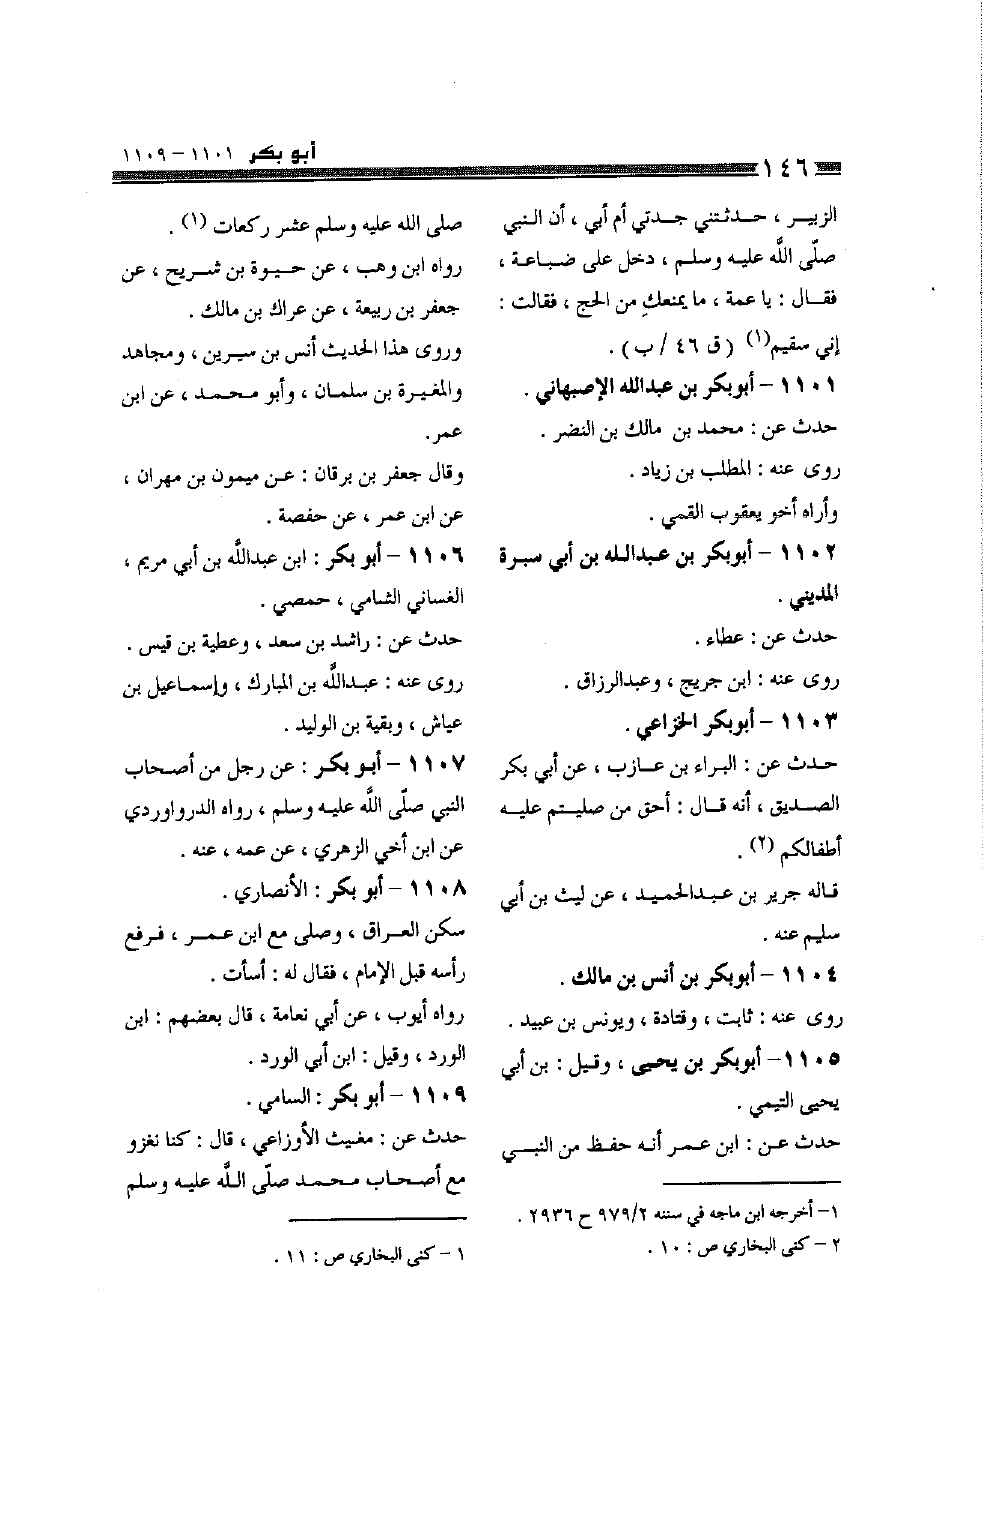 أبو بكر ١١٠١ – ١١٠٩
١٤٦
الزبير ، حدثتني جدتي أم أبي ، أن النبي
صلّى اللَّه عليه وسلم ، دخل على ضباعة ،
فقال : يا عمة ، ما يمنعكِ من الحج ، فقالت :
إني سقيم(١) (ق ٤٦ / ب) .
١١٠١ – أبوبكر بن عبدالله الإصبهاني .
حدث عن : محمد بن مالك بن النضر .
روى عنه : المطلب بن زياد .
وأراه أخو يعقوب القمي .
١١٠٢ – أبوبكر بن عبدالله بن أبي سبرة
المديني .
حدث عن : عطاء .
روى عنه : ابن جريج ، وعبدالرزاق .
١١٠٣ – أبوبكر الخزاعي .
حدث عن : البراء بن عازب ، عن أبي بكر
الصديق ، أنه قال : أحق من صليتم عليه
أطفالكم (٢) .
قاله جرير بن عبدالحميد ، عن ليث بن أبي
سليم عنه .
١١٠٤ – أبوبكر بن أنس بن مالك .
روى عنه : ثابت ، وقتادة ، ويونس بن عبيد .
١١٠٥ – أبوبكر بن يحيى ، وقيل : بن أبي
يحيى التيمي .
حدث عن : ابن عمر أنه حفظ من النبي
١– أخرجه ابن ماجه في سننه ٩٧٩/٢ ح ٢٩٣٦ .
٢ – كنى البخاري ص : ١٠ .
صلى الله عليه وسلم عشر ركعات (١) .
رواه ابن وهب ، عن حيوة بن شريح ، عن
جعفر بن ربيعة ، عن عراك بن مالك .
وروى هذا الحديث أنس بن سيرين ، ومجاهد
والمغيرة بن سلمان ، وأبو محمد ، عن ابن
عمر.
وقال جعفر بن برقان : عن ميمون بن مهران ،
عن ابن عمر ، عن حفصة .
١١٠٦ – أبو بكر : ابن عبداللَّه بن أبي مريم ،
الغساني الشامي ، حمصي .
حدث عن : راشد بن سعد ، وعطية بن قيس .
روى عنه : عبداللَّه بن المبارك ، وإسماعيل بن
عياش ، وبقية بن الوليد .
١١٠٧ – أبو بكر : عن رجل من أصحاب
النبي صلّى اللَّه عليه وسلم ، رواه الدرواوردي
عن ابن أخي الزهري ، عن عمه ، عنه .
١١٠٨ – أبو بكر : الأنصاري .
سكن العراق ، وصلى مع ابن عمر ، فرفع
رأسه قبل الإمام ، فقال له : أسأت .
رواه أيوب ، عن أبي نعامة ، قال بعضهم : ابن
الورد ، وقيل : ابن أبي الورد .
١١٠٩ – أبو بكر : السامي .
حدث عن : مغيث الأوزاعي ، قال : كنا نغزو
مع أصحاب محمد صلّى اللَّه عليه وسلم
١ – كنى البخاري ص : ١١ .